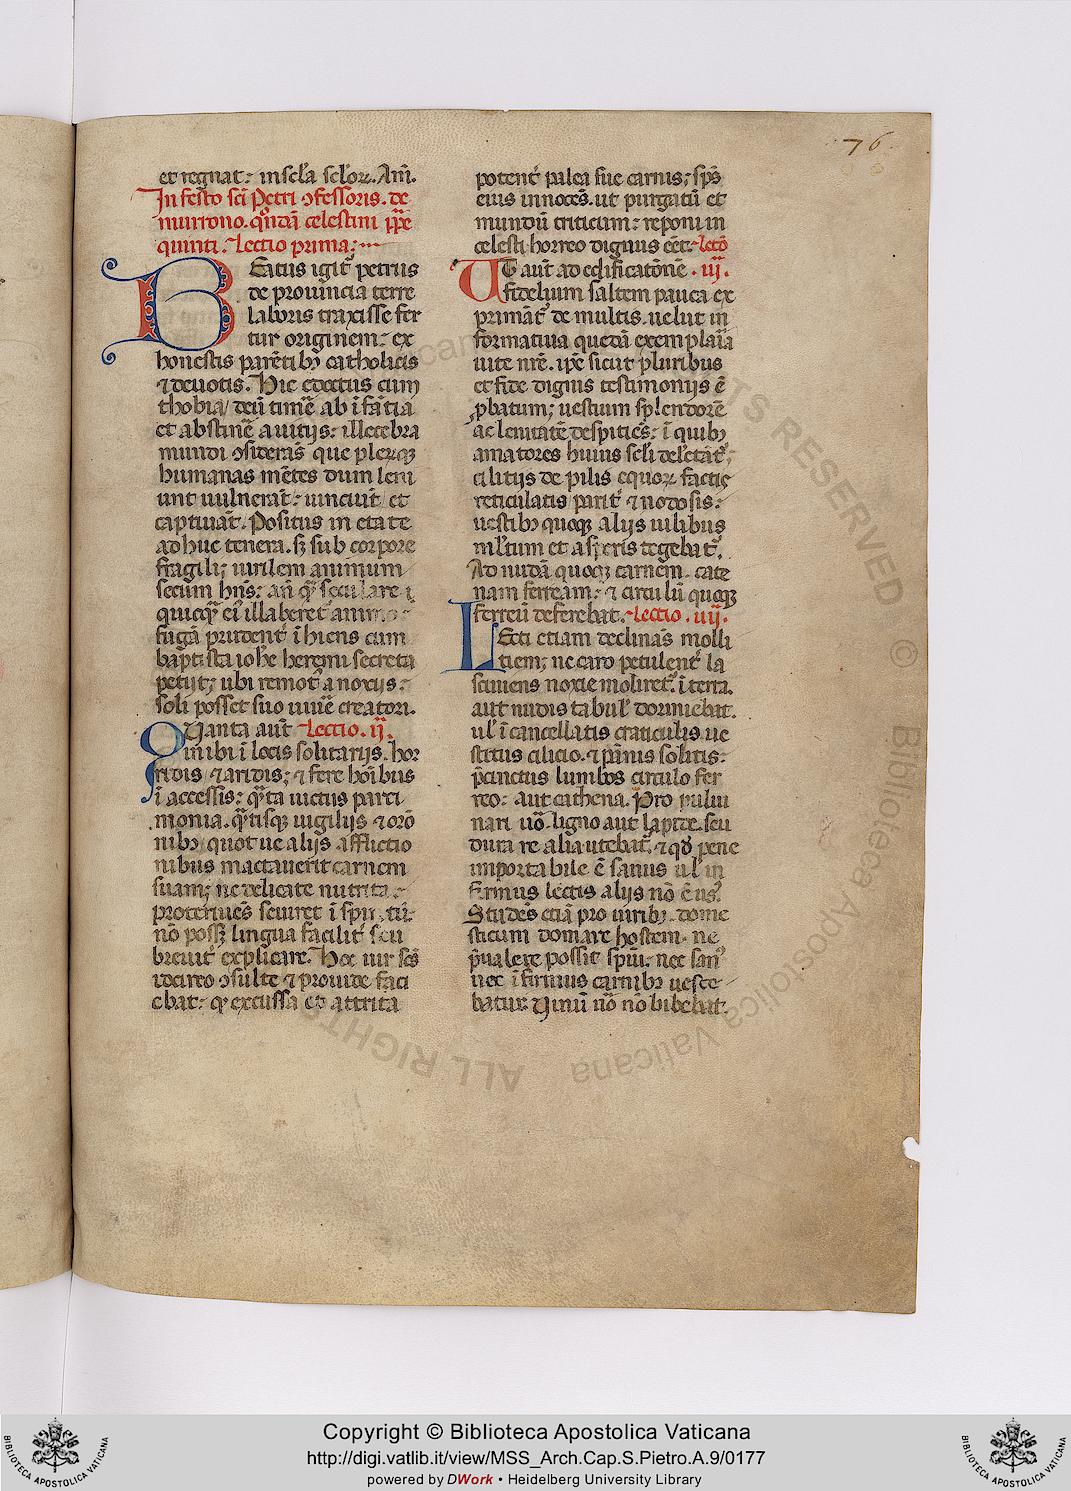 76
et regnat: in scła scłoꝝ. Am̅.
In festo sc̅i Petri ꝯfessoris. de
murrono. qͦndā celestini pp̅e
quinti. Lectio prima:
BEatus igit᷑ petrus
de prouincia terre
laboris traxisse fer
tur originem: ex
honestis parētibꝫ catholicis
⁊ deuotis. Hic edoctus cum
thobia/ deū timē ab īfātia
et abstinē a uitijs: illecebra
mundi ꝯsiderās que plerꝫqꝫ
humanas mētes dum leni
unt uulnerāt: uinciūt et
captiuāt. Positus in etate
adhuc tenera. sꝫ sub corpore
fragili; uirilem animum
secum hn̅s: an̅ qͣ seculare
quicqͣ ei illaberet᷑ animo:
fugā prudent᷑ īhiens cum
baptista ioh̅e heremi secreta
petijt; ubi remot᷑ a noxijs:
soli posset suo uiuē creatori.
QUanta aut̅ Lectio. ij.
inibi ī locis solitarijs. hor
ridis ⁊ aridis; ⁊ fere hoībus
īaccessis: qͣta uictus parci
monia. qͣtisqꝫ uigilijs ⁊ orō
nibꝫ quotue alijs afflictio
nibus mactauerit carnem
suam; ne delicate nutrita
proteruiēs seuiret ī spm̅.
nō possꝫ lingua facilit᷑ seu
breuit᷑ explicare. Hec uir sc̅s
idcirco ꝯsulte ⁊ prouide faci
ebat: qͥ excussa et attrita
potent᷑ palea sue carnis; sp̅s
eius innocēs. ut purgatū et
mundū triticum: reponi in
celesti horreo dignus eēt. Lectō
UT aut̅ ad edificatōnē .iij.
fidelium saltem pauca ex
primāt᷑ de multis. uelut in
formatiua quedā exemplaria
uite nr̅e. ip̅e sicut pluribus
et fide dignis testimonijs ē
ꝓbatum; uestium splendorē
ac lenitatē despiciēs: ī quibꝫ
amatores huius scl̅i delc̅tāt᷑;
cilitijs de pilis equoꝝ factis
reticulatis parit᷑ ⁊ nodosis:
uestibꝫ quoqꝫ alijs uilibus
ml̅tum et asperis tegebat᷑.
Ad nudā quoqꝫ carnem. cate
nam ferream: ⁊ circulū quoqꝫ
ferreū deferebat. Lectio .iiij.
LEcti etiam declinās molli
tiem; ne caro petulent᷑ la
sciuiens noxie moliret᷑. ī terra.
aut nudis tabul̅ dormiebat.
ul̅ ī cancellatis craticulis. ue
stitus cilicio. ⁊ pān̅is solitis:
p̄cinctus lumbos circulo fer
reo: aut cathena. Pro puluī
nari uō. ligno aut lapide. seu
dura re alia utebat᷑. ⁊ qd̅ pene
importabile ē sanus ul̅ in
firmus lectis alijs nō ē us᷑.
Studēs etiā pro uiribꝫ. dome
sticum domare hostem. ne
p̄ualere possit spūi: nec san᷒
nec īfirmus carnibꝫ uesce
batur. Uinū uō nō bibebat.
Copyright © Biblioteca Apostolica Vaticana
http://digi.vatlib.it/view/MSS_Arch.Cap.S.Pietro.A.9/0177
powered by DWork • Heidelberg University Library
BIBLIOTECA APOSTOLICA VATICANA
BIBLIOTECA APOSTOLICA VATICANA
ALL RIGHTS RESERVED © Biblioteca Apostolica Vaticana